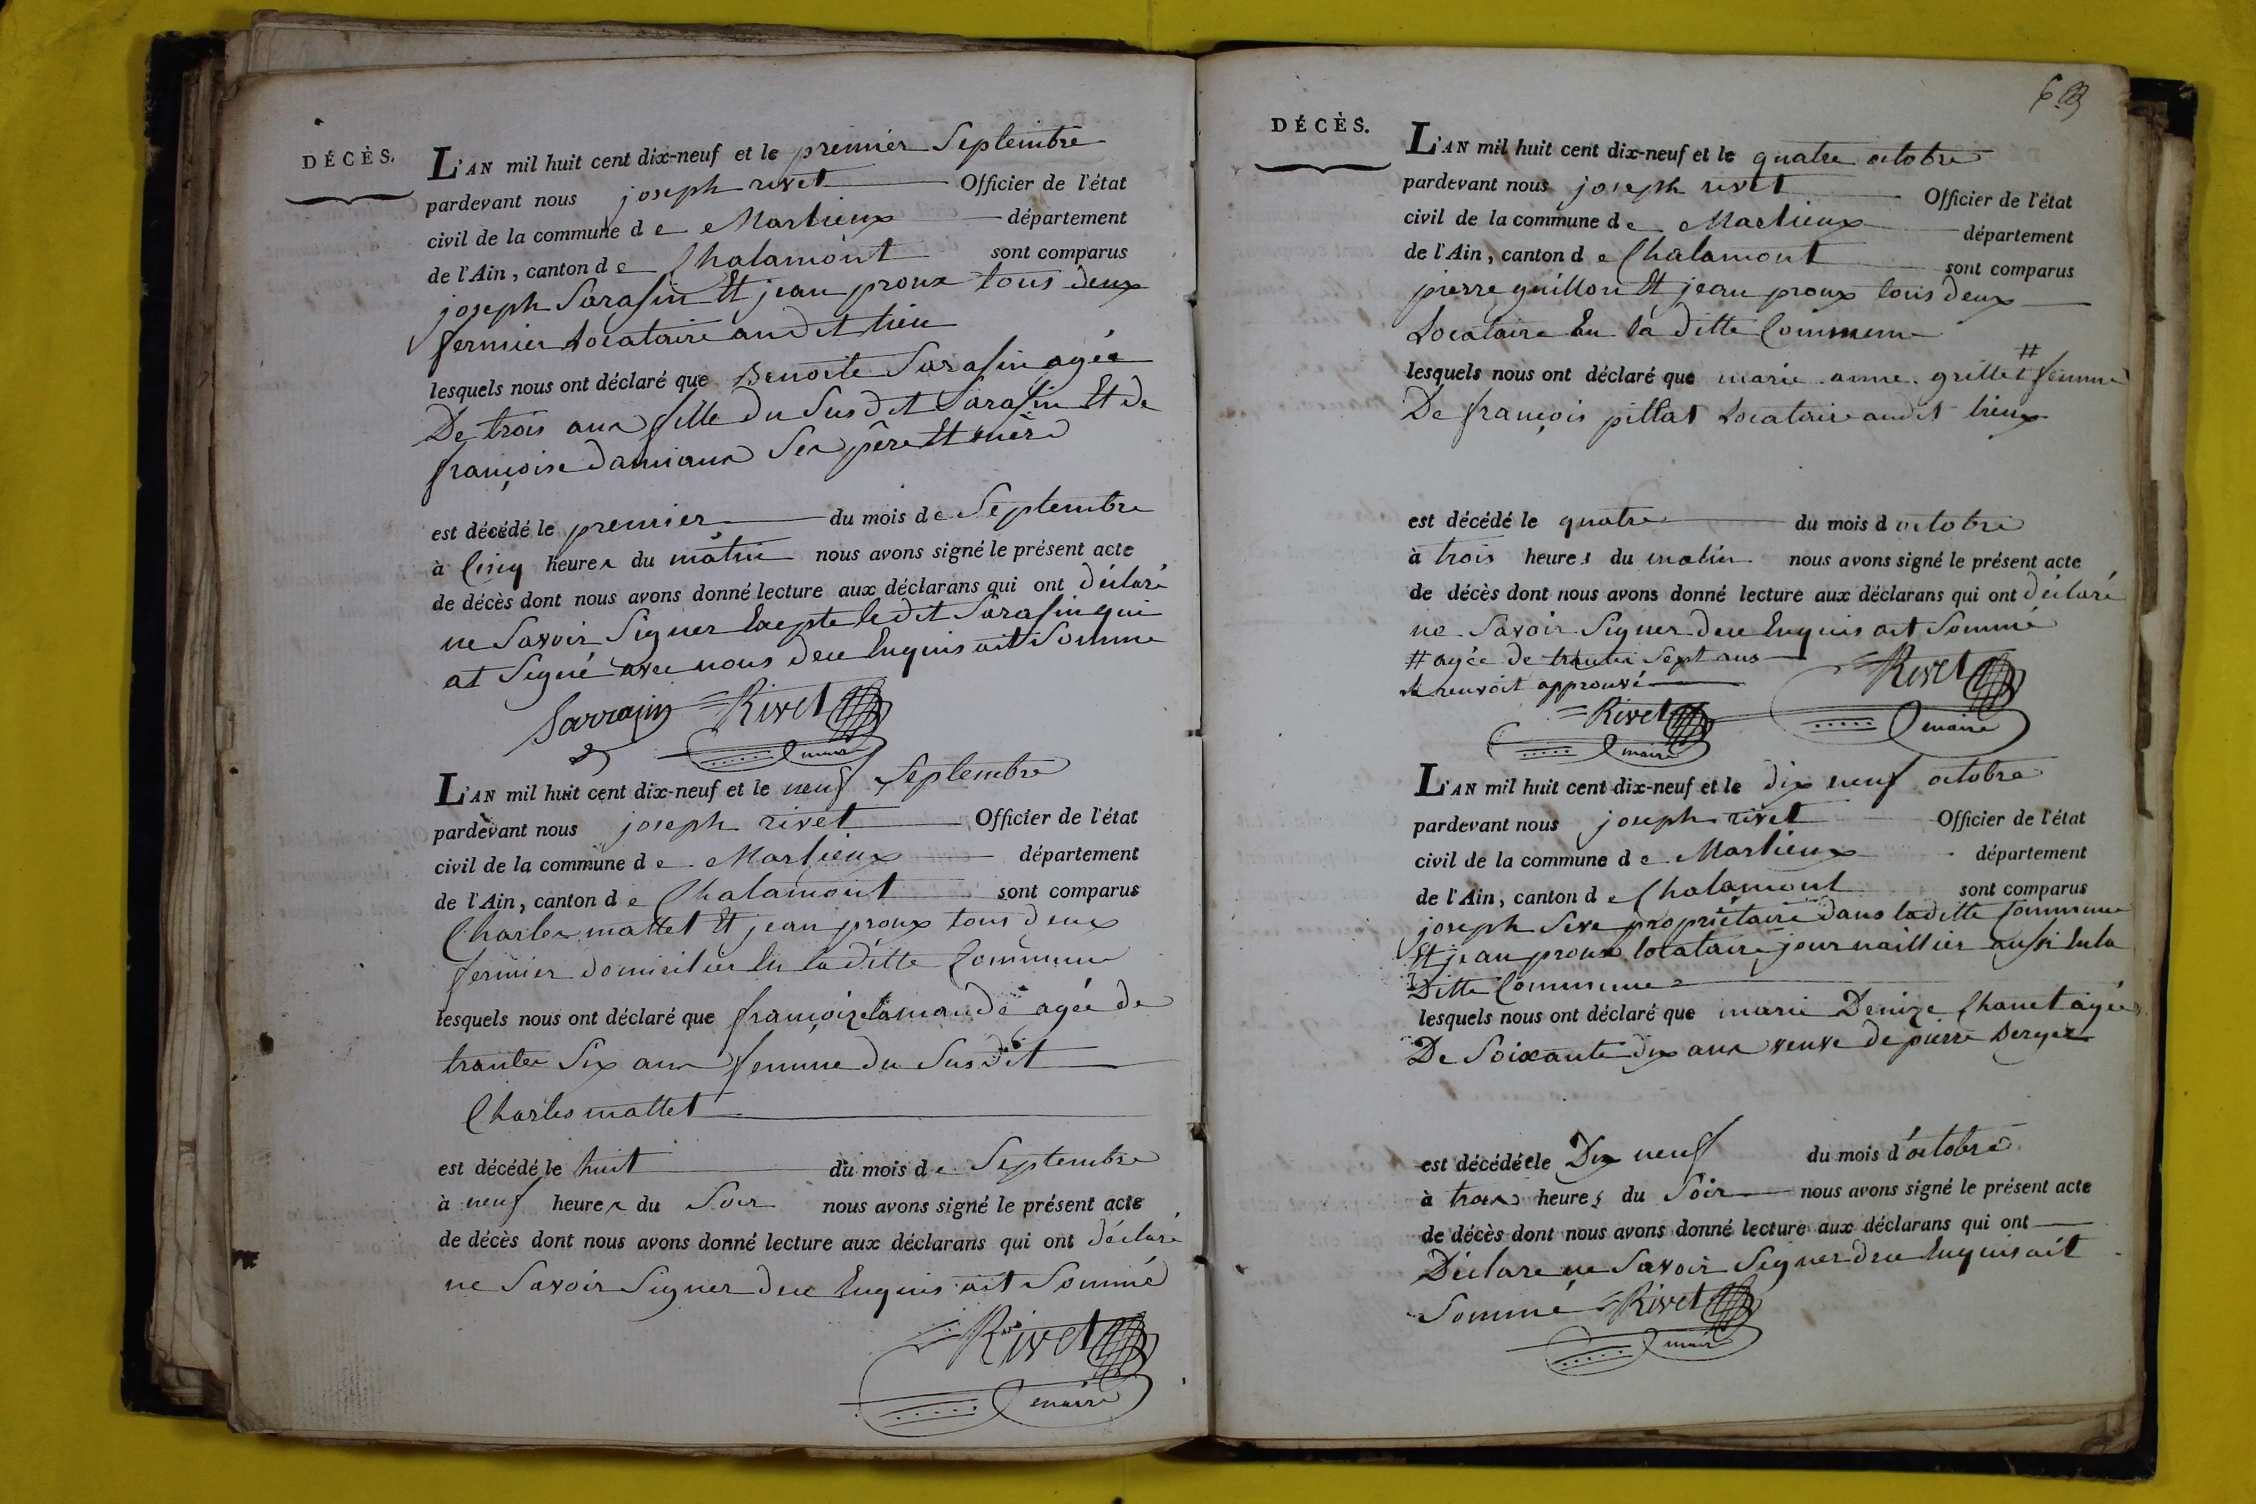 DÉCÈS.
L'AN mil huit cent dix-neuf et le premier Septembre
pardevant nous joseph rivet Officier de l'état
civil de la commune de Marlieux département
de l'Ain, canton de Chalamont sont comparus
joseph Sarasin Et jean proux tous deux
fermier Locataire audit lieu
lesquels nous ont déclaré que Benoite Sarasin agée
De trois ans fille du Susdit Sarasin Et de
françoise damians Ses père Et mère
est décédé le premier du mois de Septembre
à Cinq heures du matin nous avons signé le présent acte
de décès dont nous avons donné lecture aux déclarans qui ont déclaré
ne Savoir Signer Exepte ledit Sarasin que
at Signé avec nous deu Enquis ait Somme
Sarrasin Rivet
maire
L'AN mil huit cent dix-neuf et le neuf Septembre
pardevant nous joseph rivet Officier de l'état
civil de la commune de Marlieux département
de l'Ain, canton de Chalamont sont comparus
Charles mattet Et jean proux tous deux
fermier domicilier En laditte Commune
lesquels nous ont déclaré que françoize lamande agée de
trante Six ans femme du Susdit
Charles mattet
est décédé le huit du mois de Septembre
à neuf heures du Soir nous avons signé le présent acte
de décès dont nous avons donné lecture aux déclarans qui ont déclaré
ne Savoir Signer deu Enquis ait Sommé
Rivet
maire
DÉCÈS.
L'AN mil huit cent dix-neuf et le quatre octobre
pardevant nous joseph rivet Officier de l'état
civil de la commune de Marlieux département
de l'Ain, canton de Chalamont sont comparus
pierre guillon Et jean proux tous deux
Locataire En la ditte Commune
lesquels nous ont déclaré que marie anne grillet # femme
De françois pillat Locataire audit lieux
est décédé le quatre du mois d octobre
à trois heures du matin nous avons signé le présent acte
de décès dont nous avons donné lecture aux déclarans qui ont déclaré
ne Savoir Signer deu Enquis ait Sommé
# agée de trante Sept ans Rivet
renvoit approuvé maire
Rivet
maire
L'AN mil huit cent dix-neuf et le dix neuf octobre
pardevant nous joseph rivet Officier de l'état
civil de la commune de Marlieux département
de l'Ain, canton de Chalamont sont comparus
joseph Seve propriétaire dans laditte Commune
Et jean proux locataire journaillier aussi En la
Ditte Commune
lesquels nous ont déclaré que marie Denize Chanet agée
De Soixante dix ans veuve de pierre
est décédée le Dix neuf du mois d'octobre
à trois heures du Soir nous avons signé le présent acte
de décès dont nous avons donné lecture aux déclarans qui ont
Déclare ne Savoir Signer deu Enquis ait
Sommé Rivet
maire